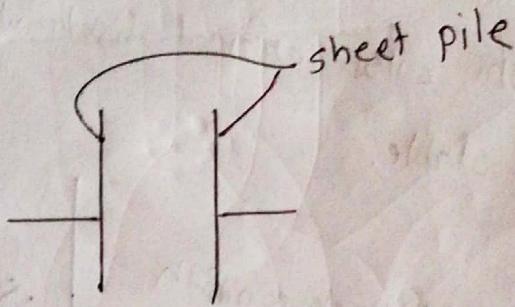 sheet pile